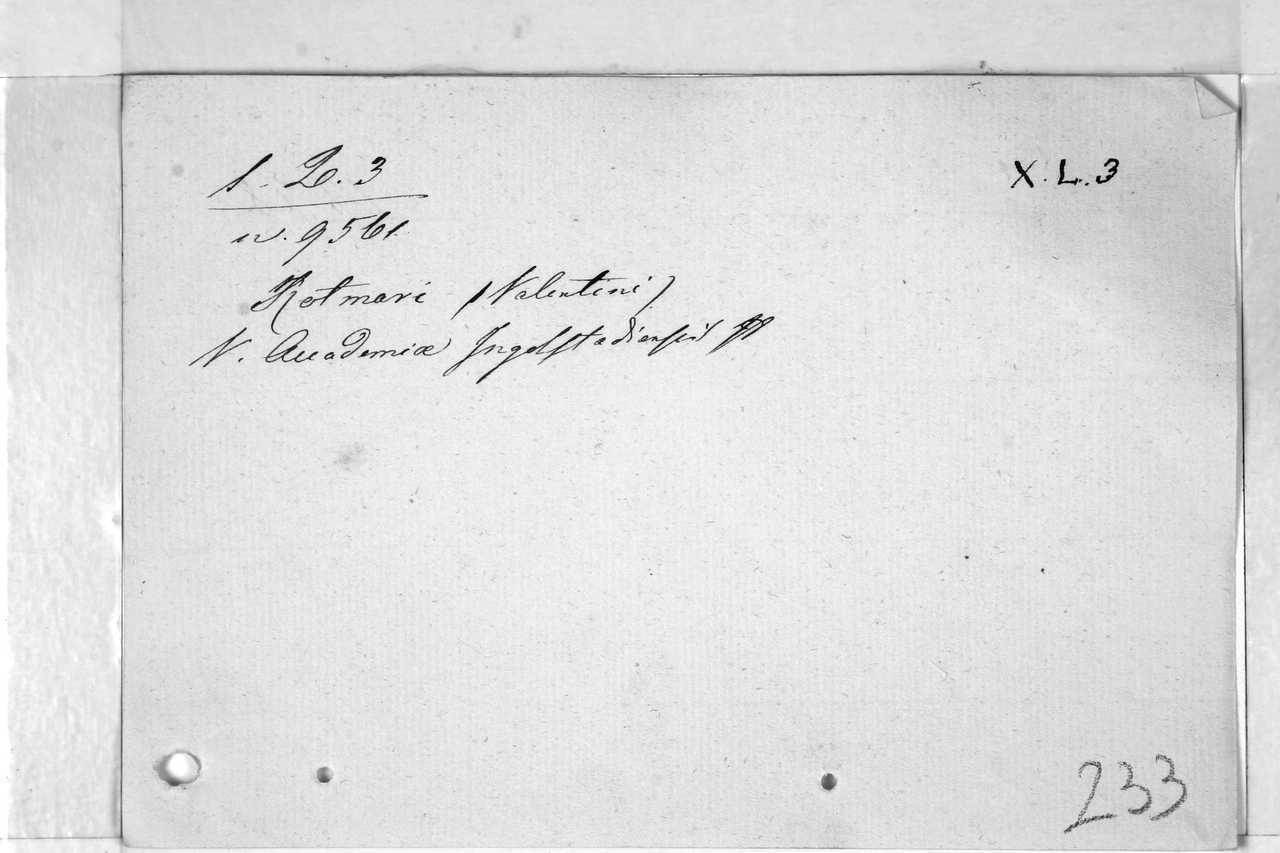 1. L. 3
X. L. 3
n. 9561.
Rotmari (Valentini)
V. Academiæ Ingolstadiensis
233